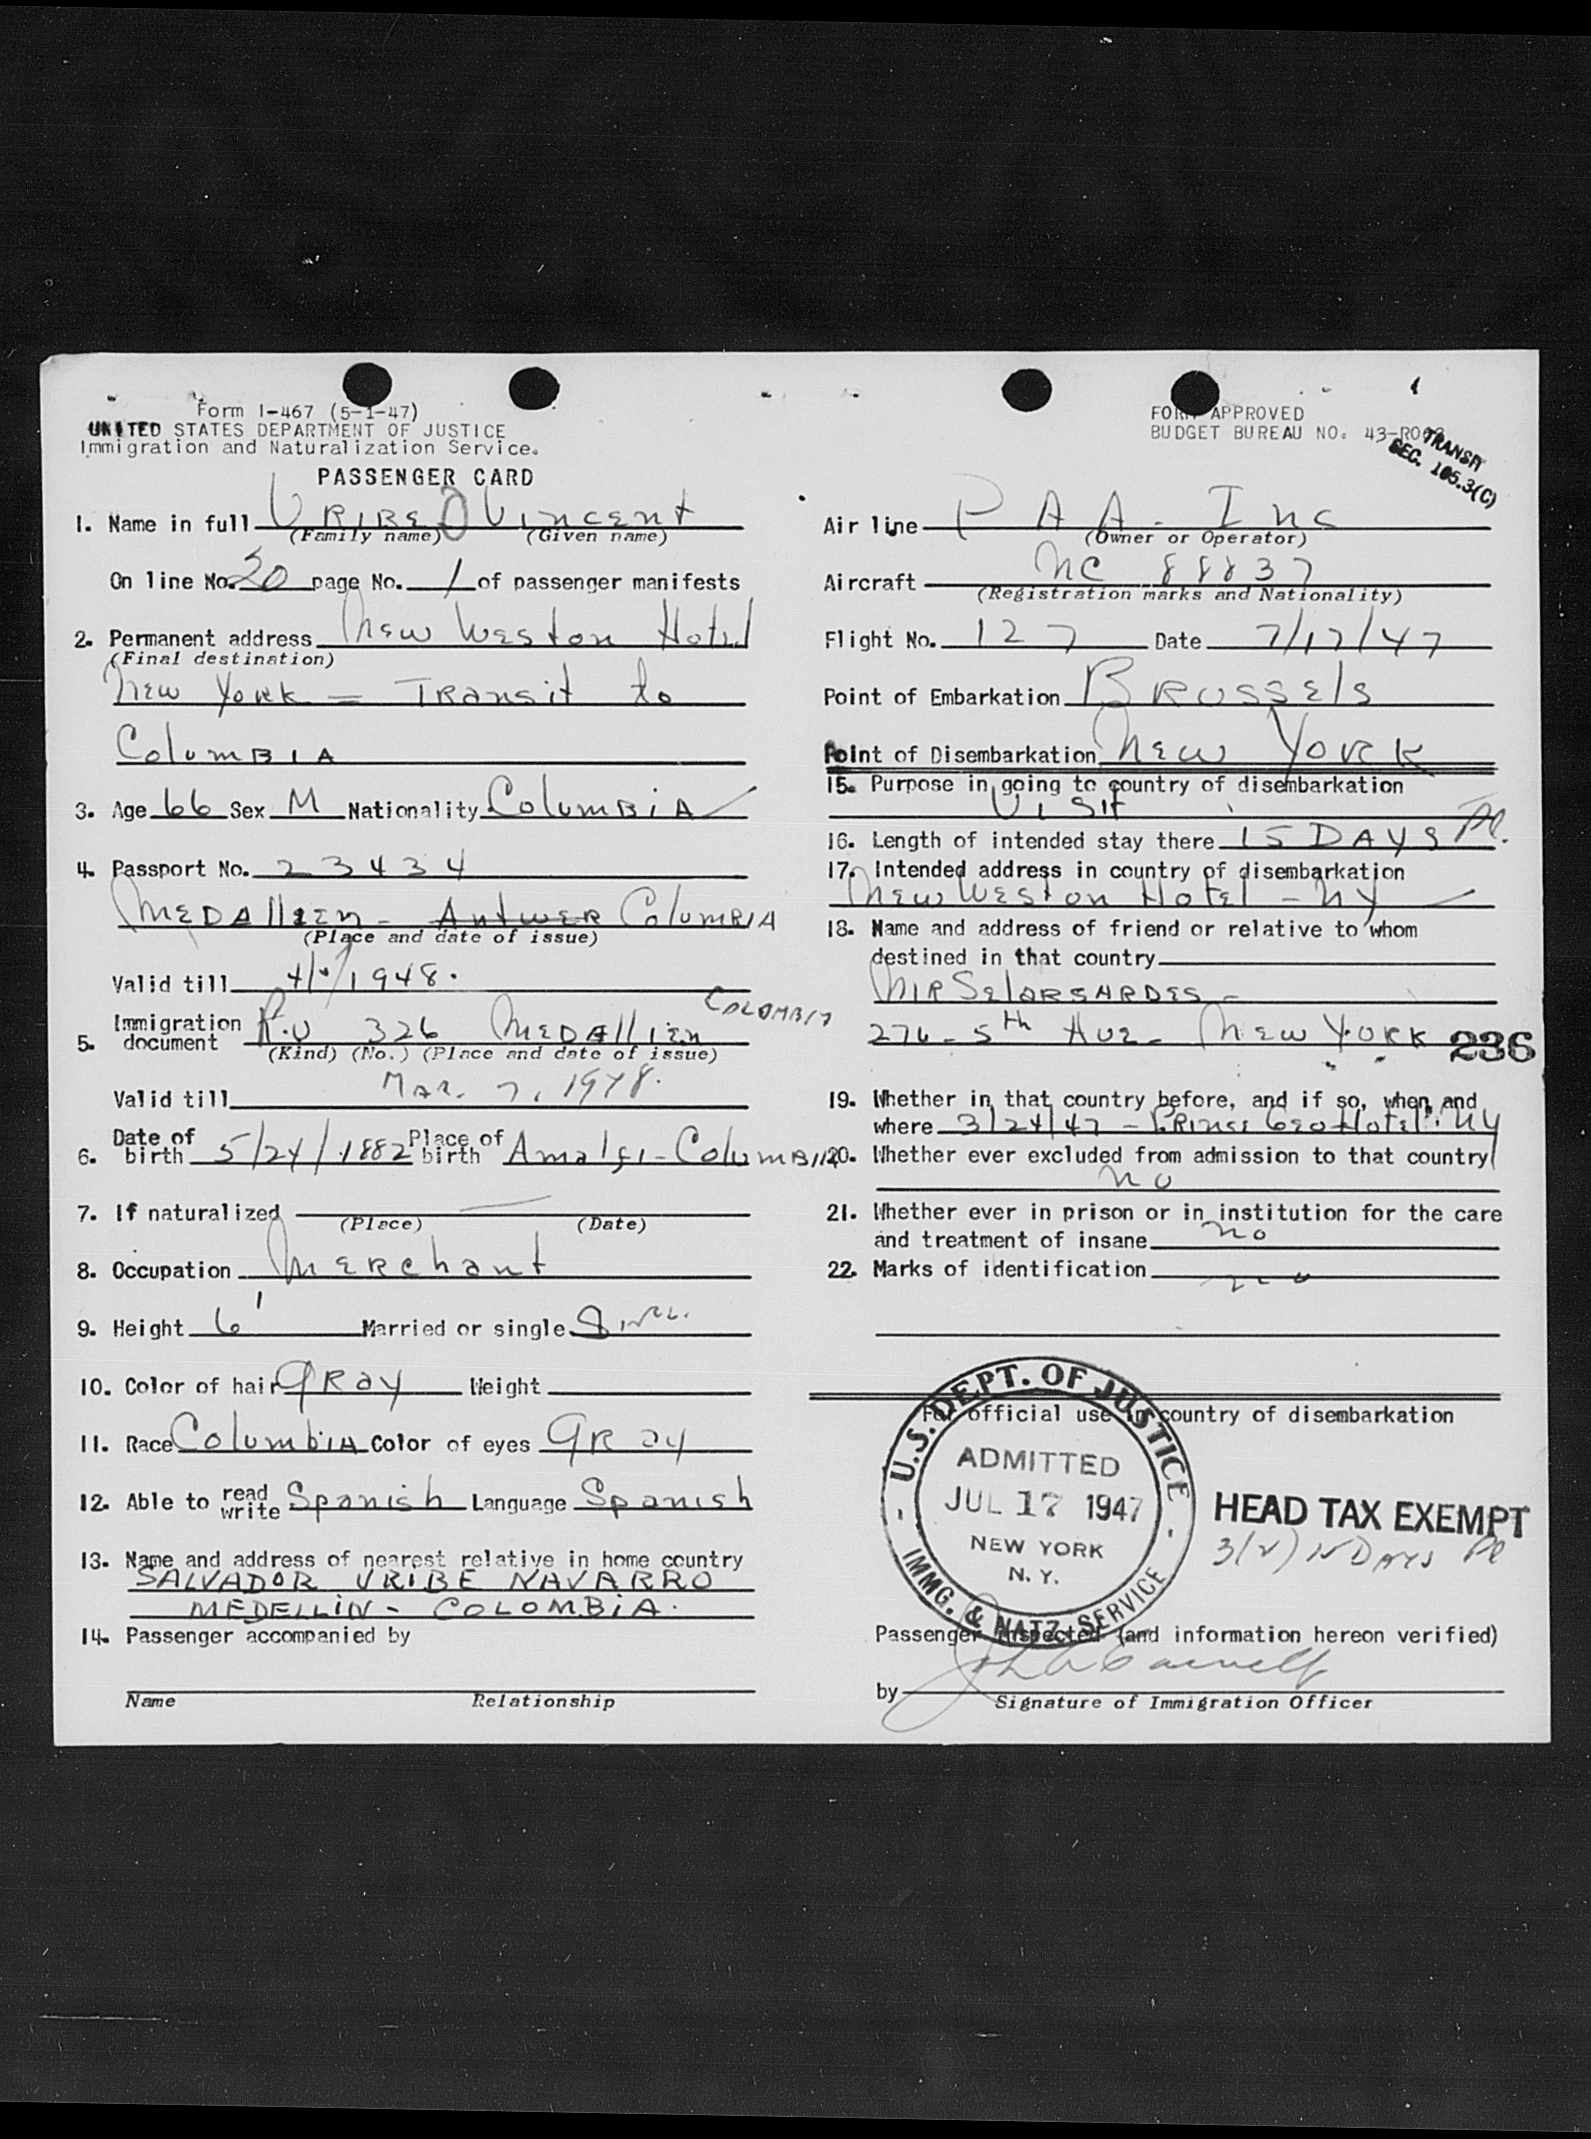 Form I-467 (5-1-47)
UNITED STATES DEPARTMENT OF JUSTICE
Immigration and Naturalization Service.
PASSENGER CARD
1. Name in full URIBE Vincent
(Family name) (Given name)
On line No. 30 page No. 1 of passenger manifests
2. Permanent address New Weston Hotel
(Final destination)
New York = Transit to
Columbia
3. Age 66 Sex M Nationality Columbia
4. Passport No. 23434
Medallien - Antwer Columbia
(Place and date of issue)
Valid till 1948.
5. Immigration document 326 Medallien COLOMBIA
(Kind) (No.) (Place and date of issue)
Valid till Mar. 7, 1948.
6. Date of birth 5/24/1882 Place of birth Amalfi - Columbia
7. If naturalized
(Place) (Date)
8. Occupation Merchant
9. Height 6' Married or single
10. Color of hair Gray Weight
11. Race Columbia Color of eyes Gray
12. Able to read write Spanish Language Spanish
13. Name and address of nearest relative in home country
SALVADOR URIBE NAVARRO
MEDELLIN - COLOMBIA.
14. Passenger accompanied by
Name Relationship
FORM APPROVED
BUDGET BUREAU NO. 43-R003
TRANSIT
SEC. 105.3(C)
Air line P A A - Inc
(Owner or Operator)
Aircraft NC 88837
(Registration marks and Nationality)
Flight No. 127 Date 7/17/47
Point of Embarkation Brussels
Point of Disembarkation New York
15. Purpose in going to country of disembarkation
Visit
16. Length of intended stay there 15 DAYS
17. Intended address in country of disembarkation
New Weston Hotel - NY
18. Name and address of friend or relative to whom
destined in that country
276 - 5th Ave - New York
236
19. Whether in that country before, and if so, when and
where 3/24/47 - Prince Geo Hotel: NY
20. Whether ever excluded from admission to that country
no
21. Whether ever in prison or in institution for the care
and treatment of insane no
22. Marks of identification
For official use in country of disembarkation
U.S. DEPT. OF JUSTICE
ADMITTED
JUL 17 1947
NEW YORK
N. Y.
IMMG. & NATZ. SERVICE
HEAD TAX EXEMPT
Passenger inspected (and information hereon verified)
by
Signature of Immigration Officer